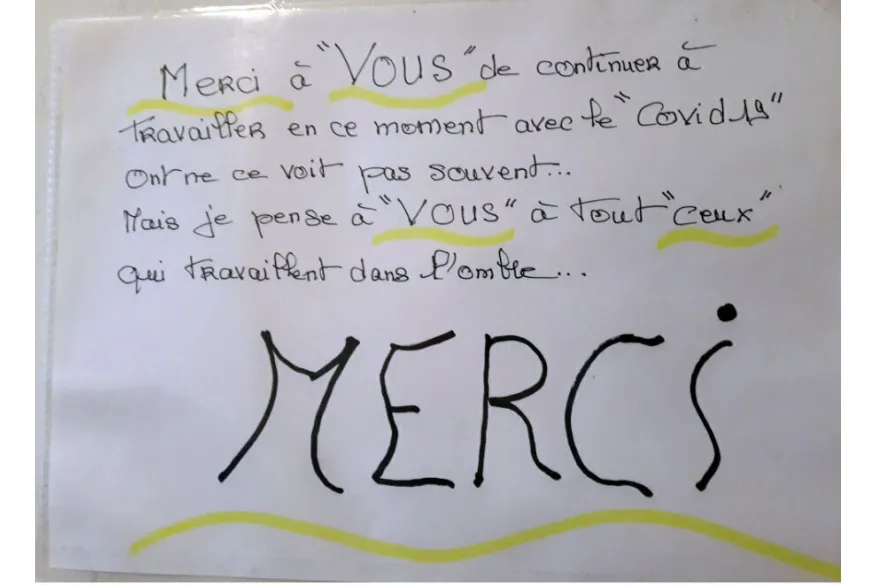 Merci à "VOUS" de continuer à
travailler en ce moment avec le "Covid 19"
Ont ne ce voit pas souvent...
Mais je pense à "VOUS" à tout "ceux"
qui travaillent dans l'omble...
MERCi